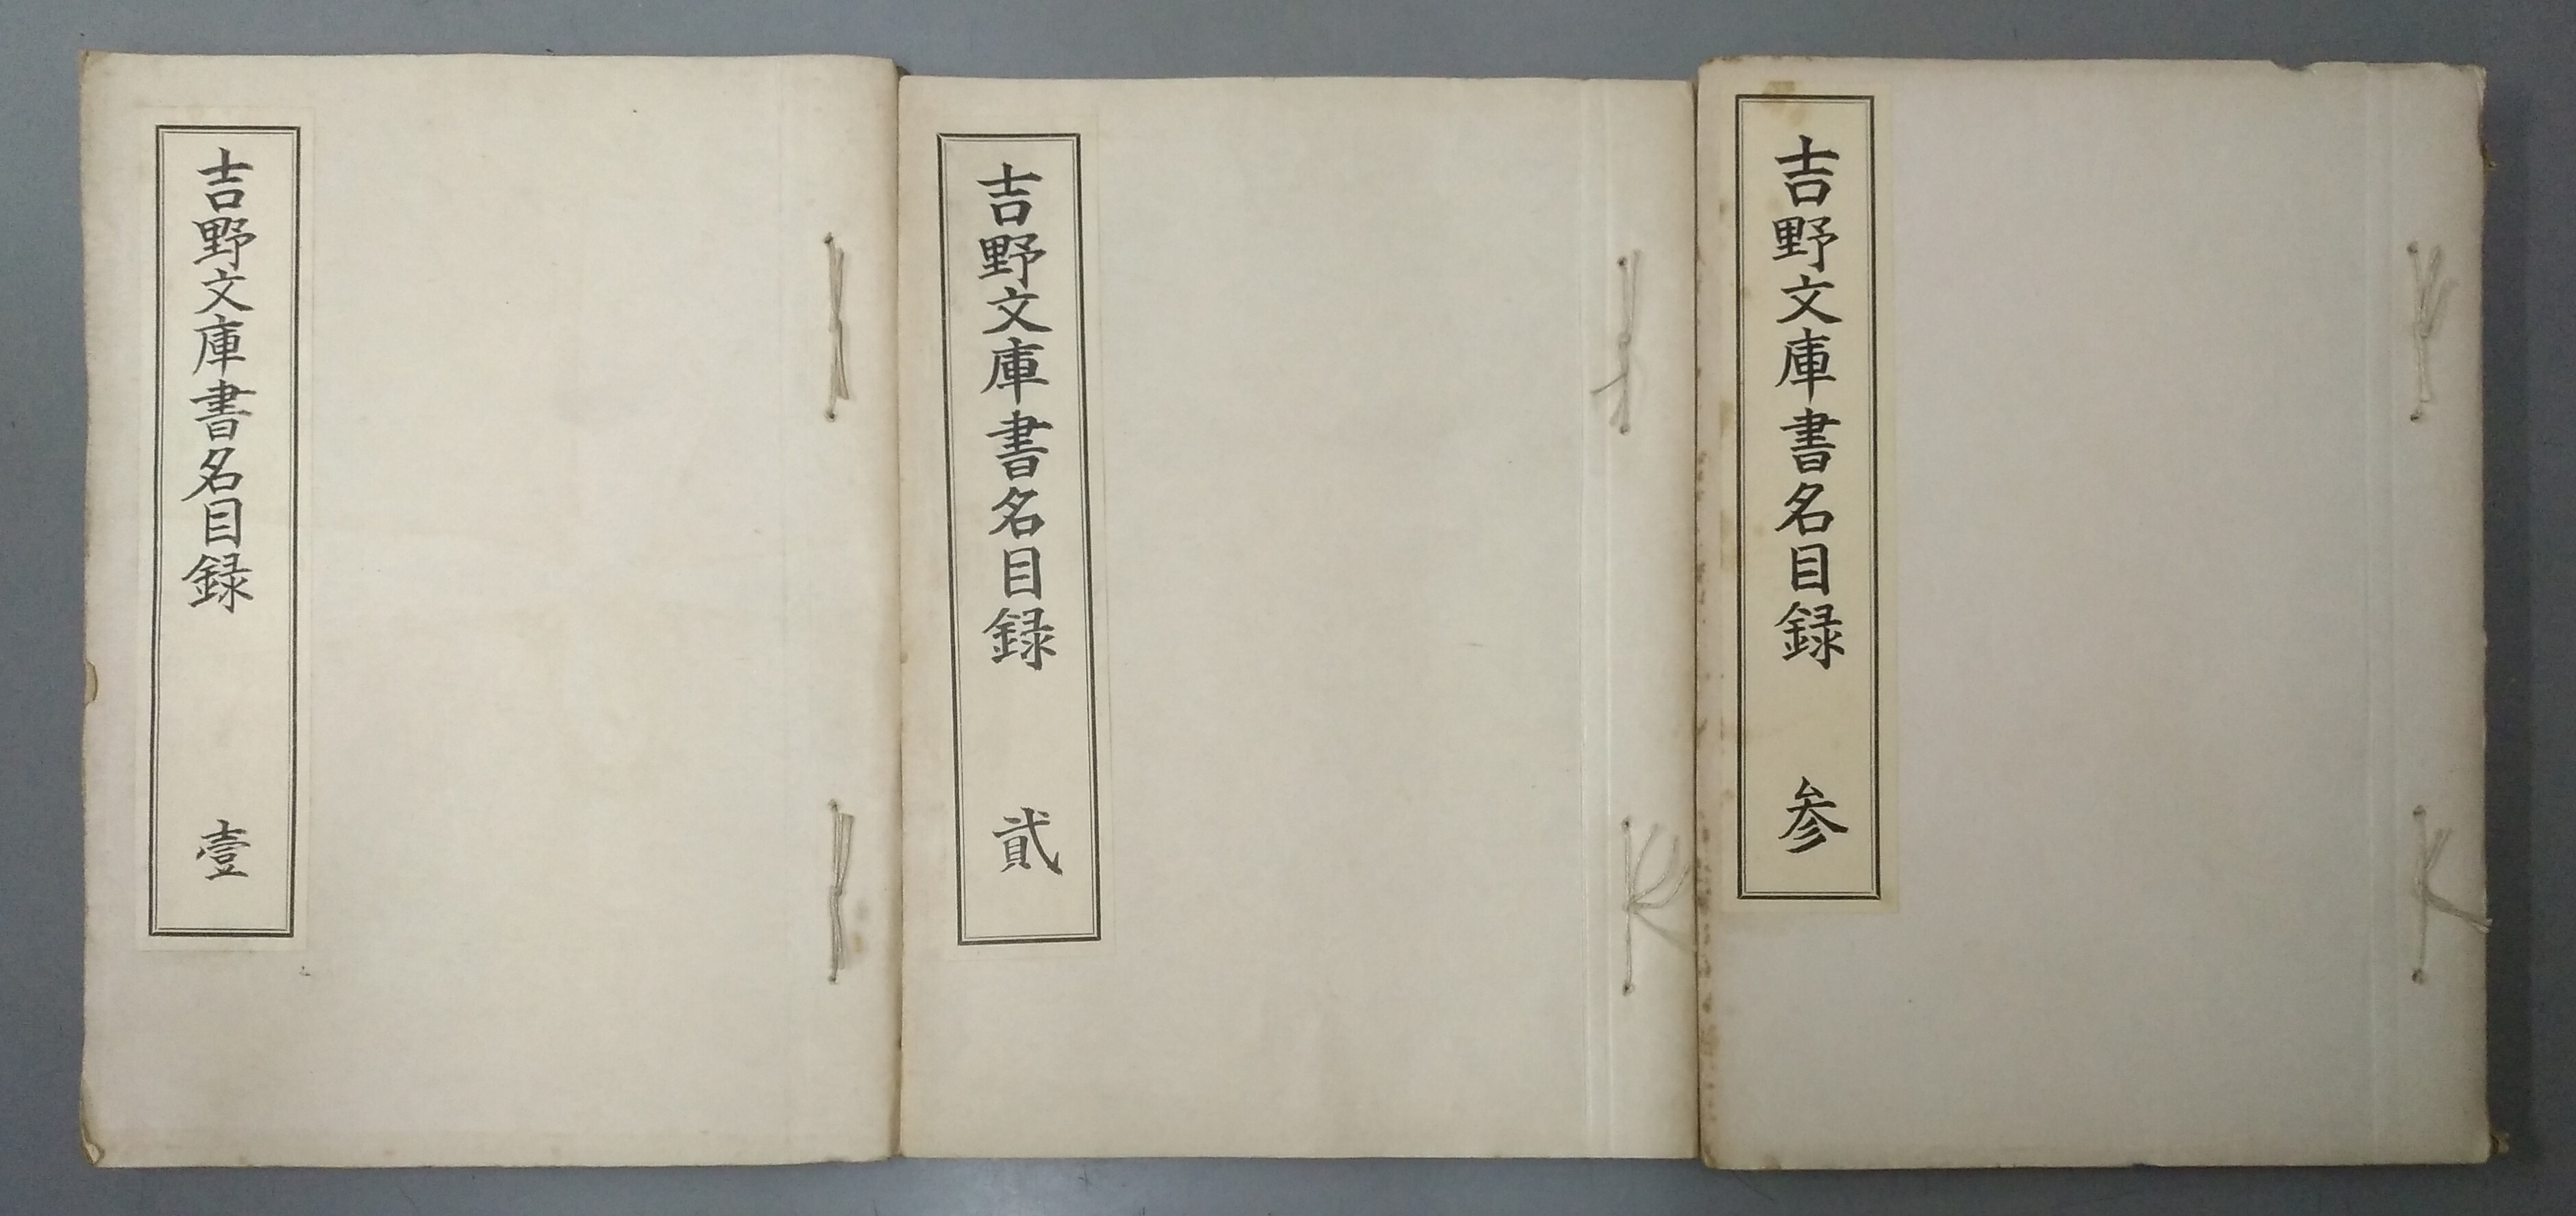 吉野文庫書名目録 壹
吉野文庫書名目録 貳
吉野文庫書名目録 参